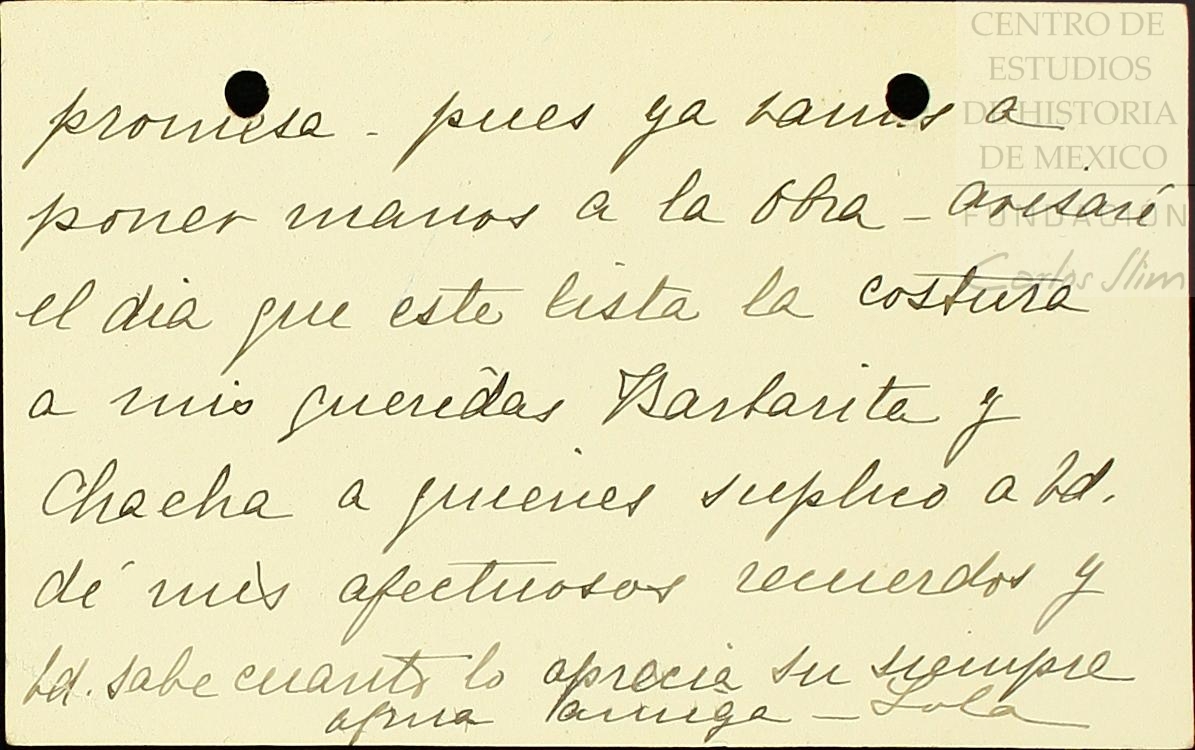 CENTRO DE
ESTUDIOS
DE HISTORIA
DE MEXICO
FUNDACIÓN
Carlos Slim
promesa - pues ya vamos a
poner manos a la obra - avisaré
el dia que este lista la costura
a mis queridas Barbarita y
Chacha a quienes suplico a Vd.
dé mis afectuosos recuerdos y
Vd. sabe cuanto lo aprecia su siempre
afma amiga - Lola